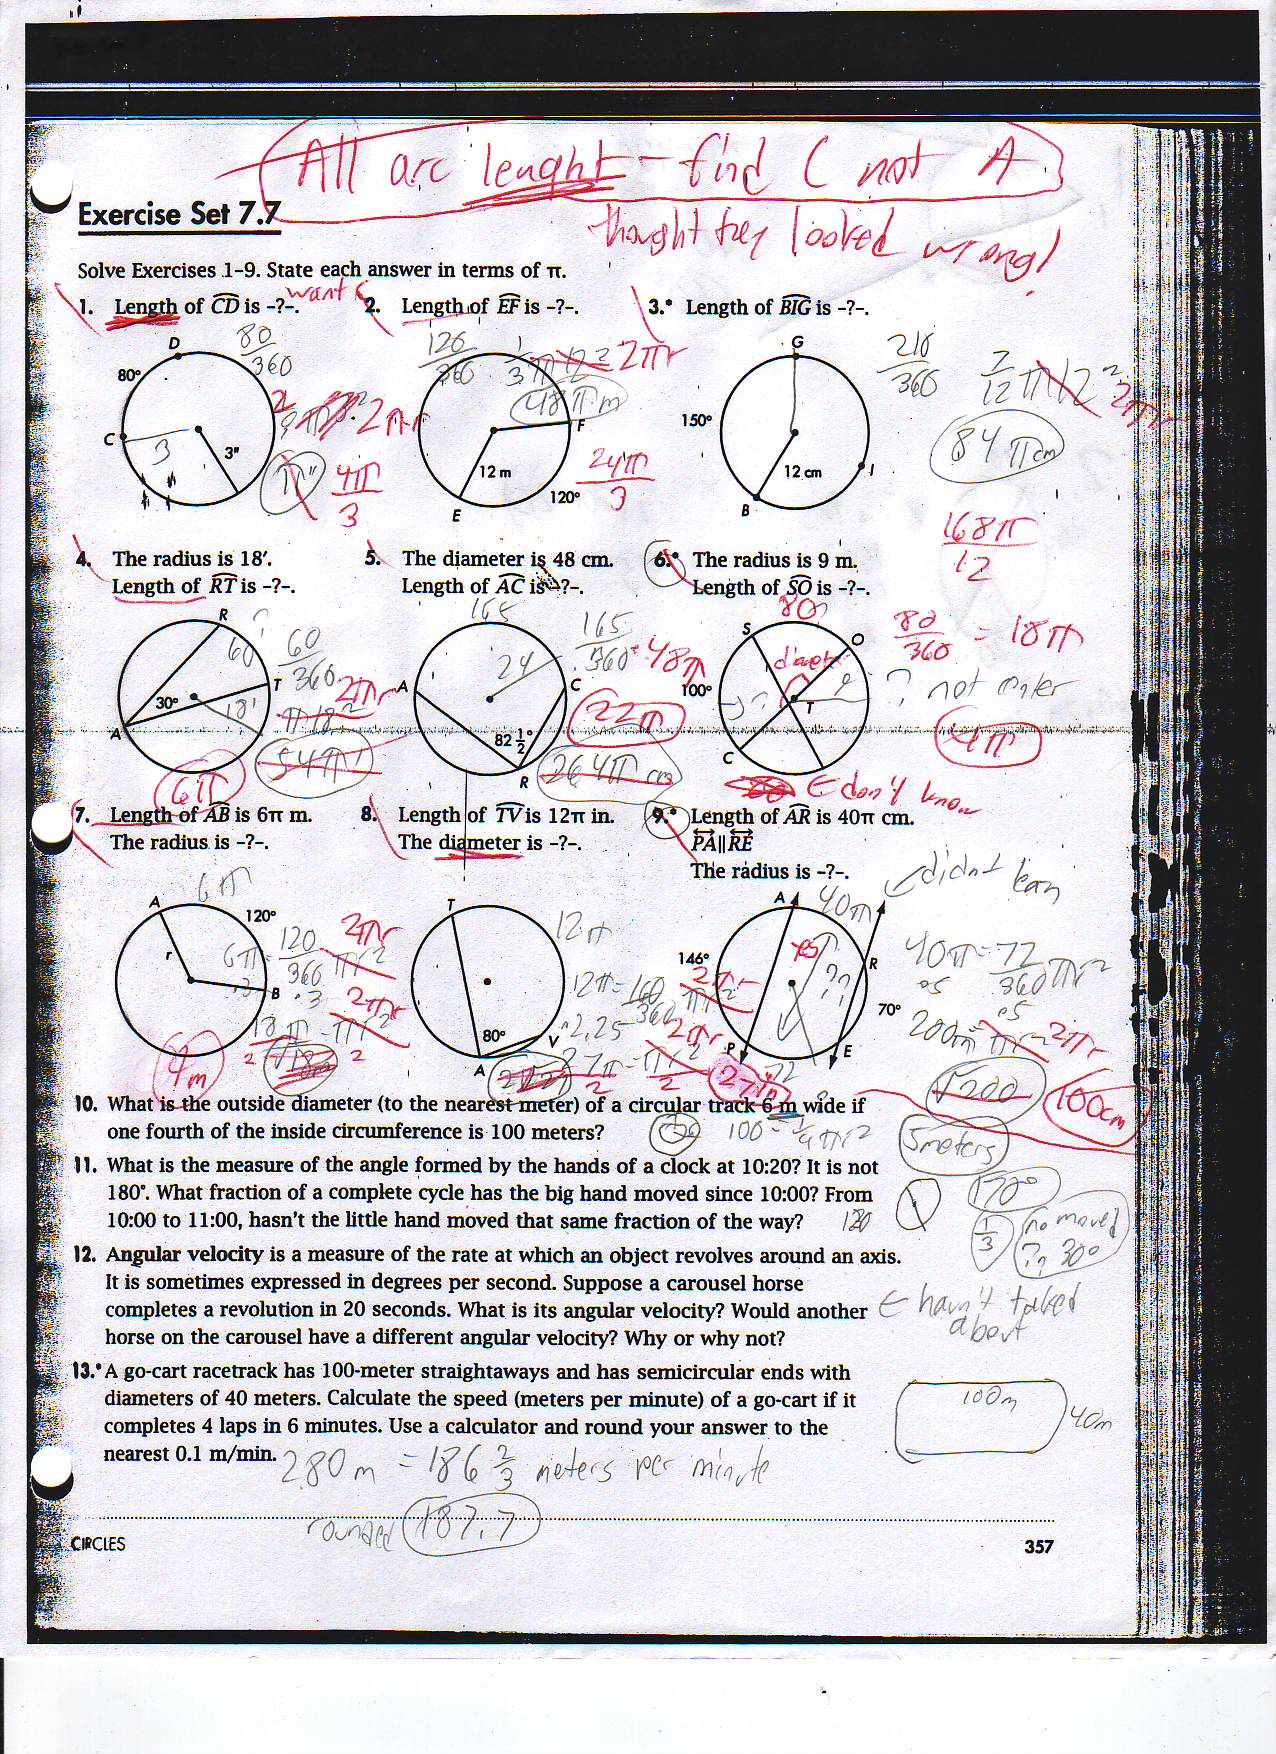 All arc lenght - find C not A
thought they looked wrong!
Exercise Set 7.7
Solve Exercises 1-9. State each answer in terms of π.
want C
1. Length of CD is -?-.
2. Length of EF is -?-.
3.• Length of BIG is -?-.
D
80°
C
3
3"
80/360
2πr
π"
4π/3
120/360
1/3 π 12²
2πr
48π m
F
12 m
E
120°
24π/3
G
150°
12 cm
B
I
210/360
7/12 π 12²
2πr
84π cm
168π/12
4. The radius is 18'.
Length of RT is -?-.
5. The diameter is 48 cm.
Length of AC is -?-.
6.• The radius is 9 m.
Length of SO is -?-.
R
?
60
30°
T
18'
A
60/360
2πr
π 18²
54π'
6π
165
24
A
C
82 1/2°
R
165/360 · 48π
22π
264π cm
80
S
O
100°
T
C
80/360 = 18π
? not enter
4π
← don't know
7. Length of AB is 6π m.
The radius is -?-.
8. Length of TV is 12π in.
The diameter is -?-.
9.• Length of AR is 40π cm.
PA∥RE
The radius is -?-.
6π
A
120°
r
B
6π = 120/360 πr²
2πr
·3
·3
18π = πr²
2πr
2
2
9m
T
12π
80°
A
V
12π = 160/360 πr²
2πr
·2.25
27π = πr²
2πr
2
2
27in
A
40π
146°
R
70°
P
E
??
72
← didnt learn
40π = 72/360 πr²
·5
·5
200π = πr²
2πr
√200
100cm
10. What is the outside diameter (to the nearest meter) of a circular track 6 m wide if
one fourth of the inside circumference is 100 meters?
100 = 1/4 πr²
5meters
11. What is the measure of the angle formed by the hands of a clock at 10:20? It is not
180°. What fraction of a complete cycle has the big hand moved since 10:00? From
10:00 to 11:00, hasn't the little hand moved that same fraction of the way?
120
170°
1/3
no moved
?? 30°
12. Angular velocity is a measure of the rate at which an object revolves around an axis.
It is sometimes expressed in degrees per second. Suppose a carousel horse
completes a revolution in 20 seconds. What is its angular velocity? Would another
horse on the carousel have a different angular velocity? Why or why not?
← havn't talked
about
13.• A go-cart racetrack has 100-meter straightaways and has semicircular ends with
diameters of 40 meters. Calculate the speed (meters per minute) of a go-cart if it
completes 4 laps in 6 minutes. Use a calculator and round your answer to the
nearest 0.1 m/min.
100m
40m
280m = 186 2/3 meters per minute
rounded 187.7
CIRCLES
357